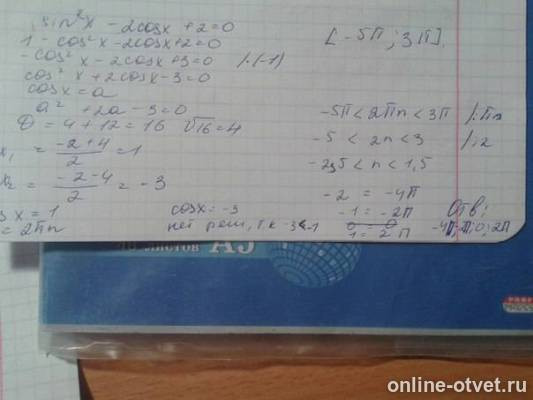 sin²x - 2cosx + 2 = 0
1 - cos²x - 2cosx + 2 = 0
-cos²x - 2cosx + 3 = 0 /·(-1)
cos²x + 2cosx - 3 = 0
cosx = a
a² + 2a - 3 = 0
D = 4 + 12 = 16 √16 = 4
x₁ = (-2+4)/2 = 1
x₂ = (-2-4)/2 = -3
s x = 1
= 2πn
cosx = -3
нет реш, т.к -3<-1
[-5π; 3π].
-5π < 2πn < 3π /:π
-5 < 2n < 3 /:2
-2,5 < n < 1,5
-2 = -4π
-1 = -2π
0 0
1 = 2π
Отв:
-4π; -2π; 0; 2π
листов А5
online-otvet.ru